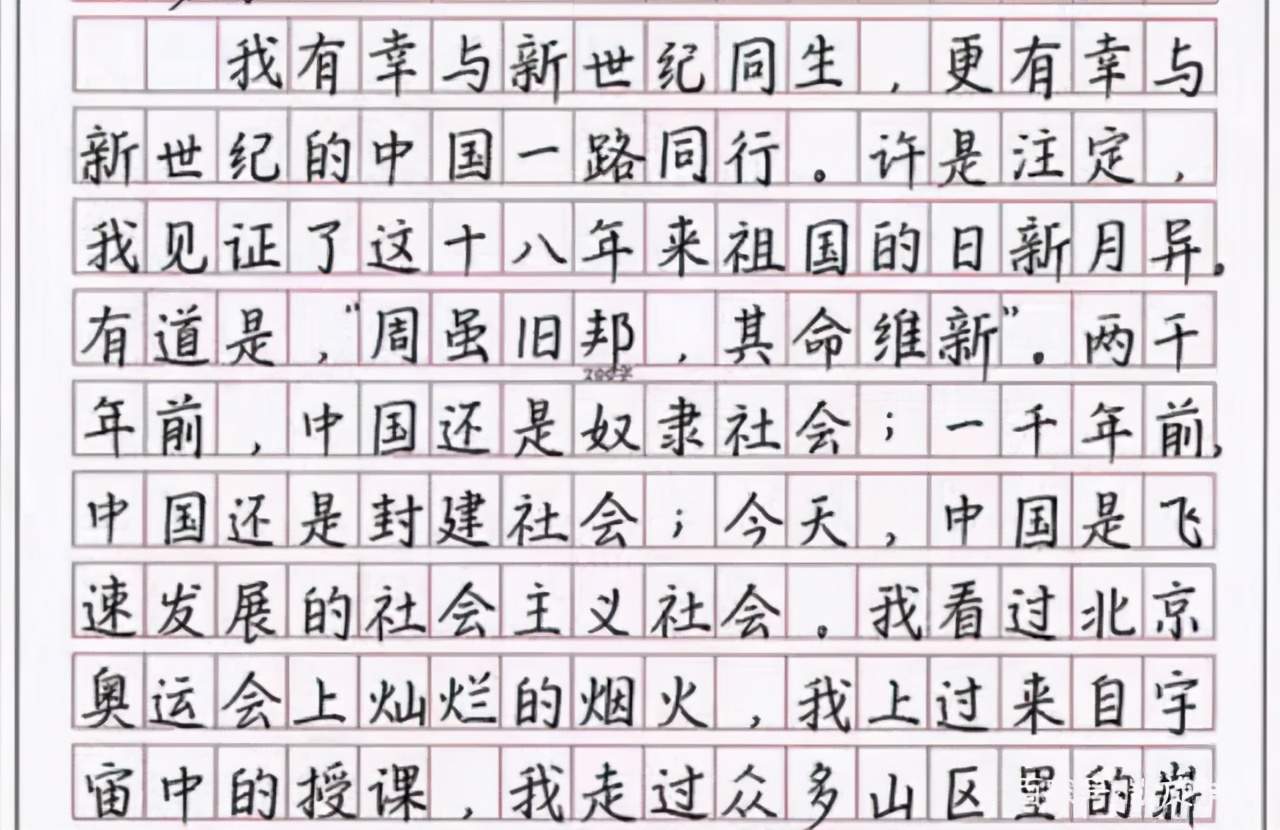 我有幸与新世纪同生，更有幸与
新世纪的中国一路同行。许是注定，
我见证了这十八年来祖国的日新月异。
有道是，“周虽旧邦，其命维新”。两千
200字
年前，中国还是奴隶社会；一千年前，
中国还是封建社会；今天，中国是飞
速发展的社会主义社会。我看过北京
奥运会上灿烂的烟火，我上过来自宇
宙中的授课，我走过众多山区里的